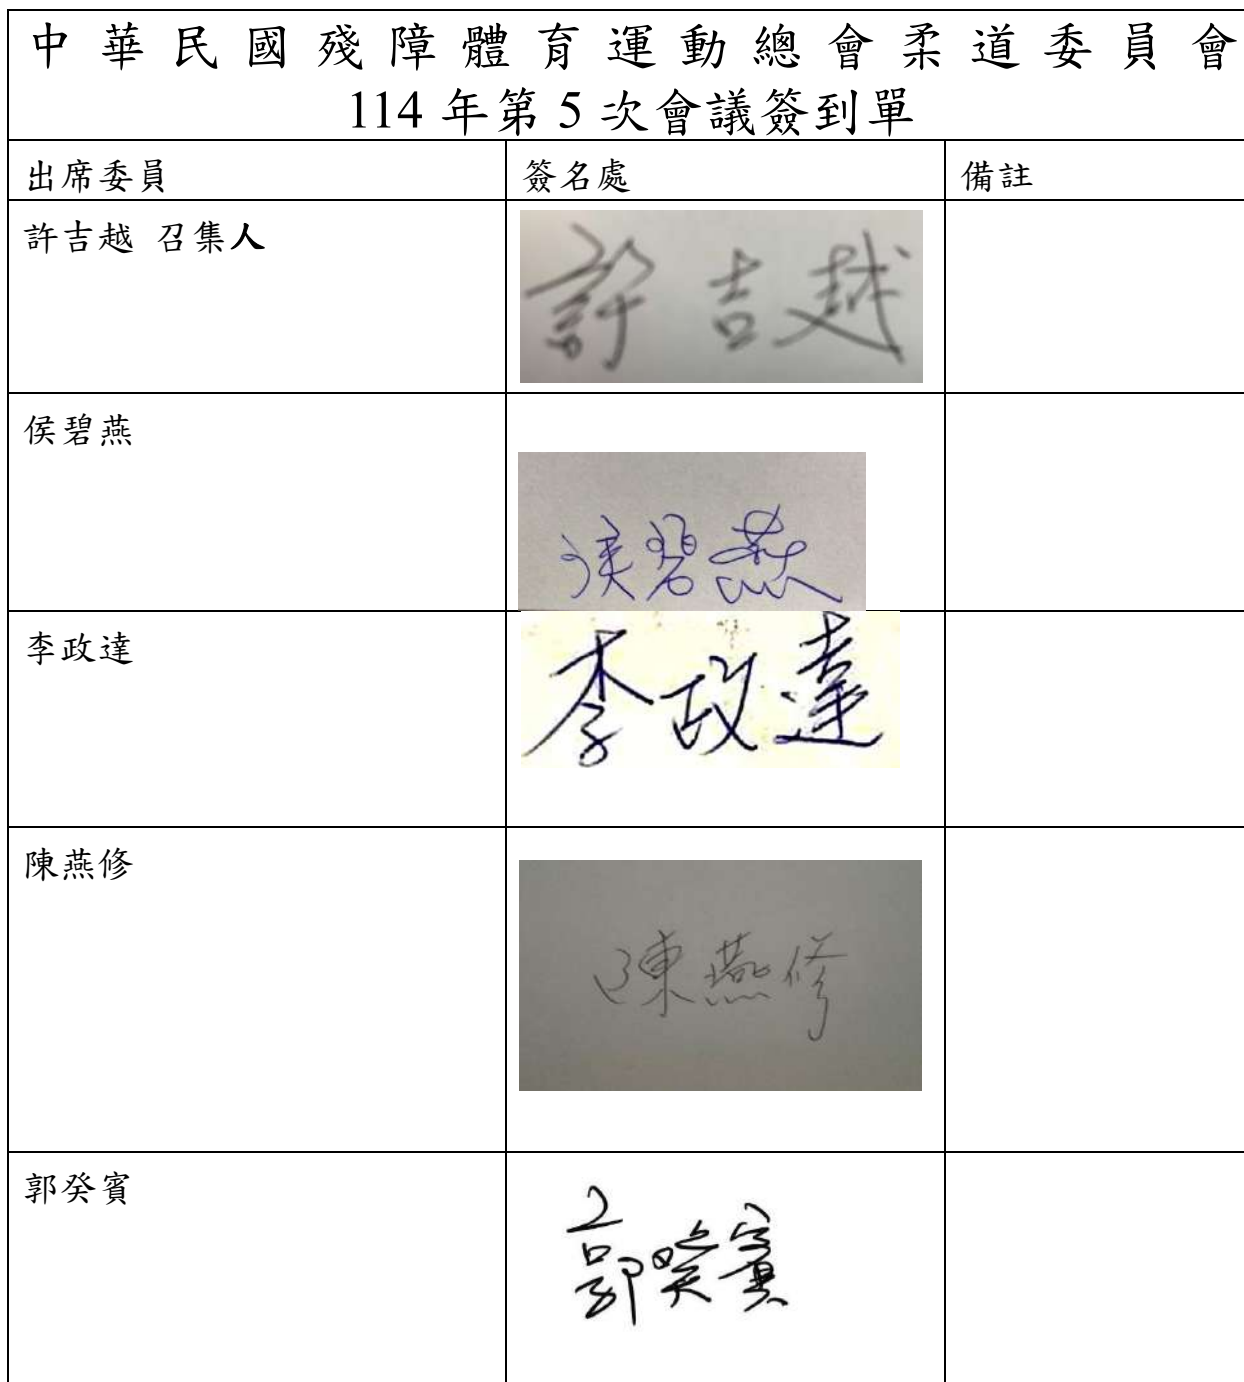 中華民國殘障體育運動總會柔道委員會
114年第5次會議簽到單
出席委員 簽名處 備註
許吉越 召集人 許吉越
侯碧燕 侯碧燕
李政達 李政達
陳燕修 陳燕修
郭癸賓 郭癸賓